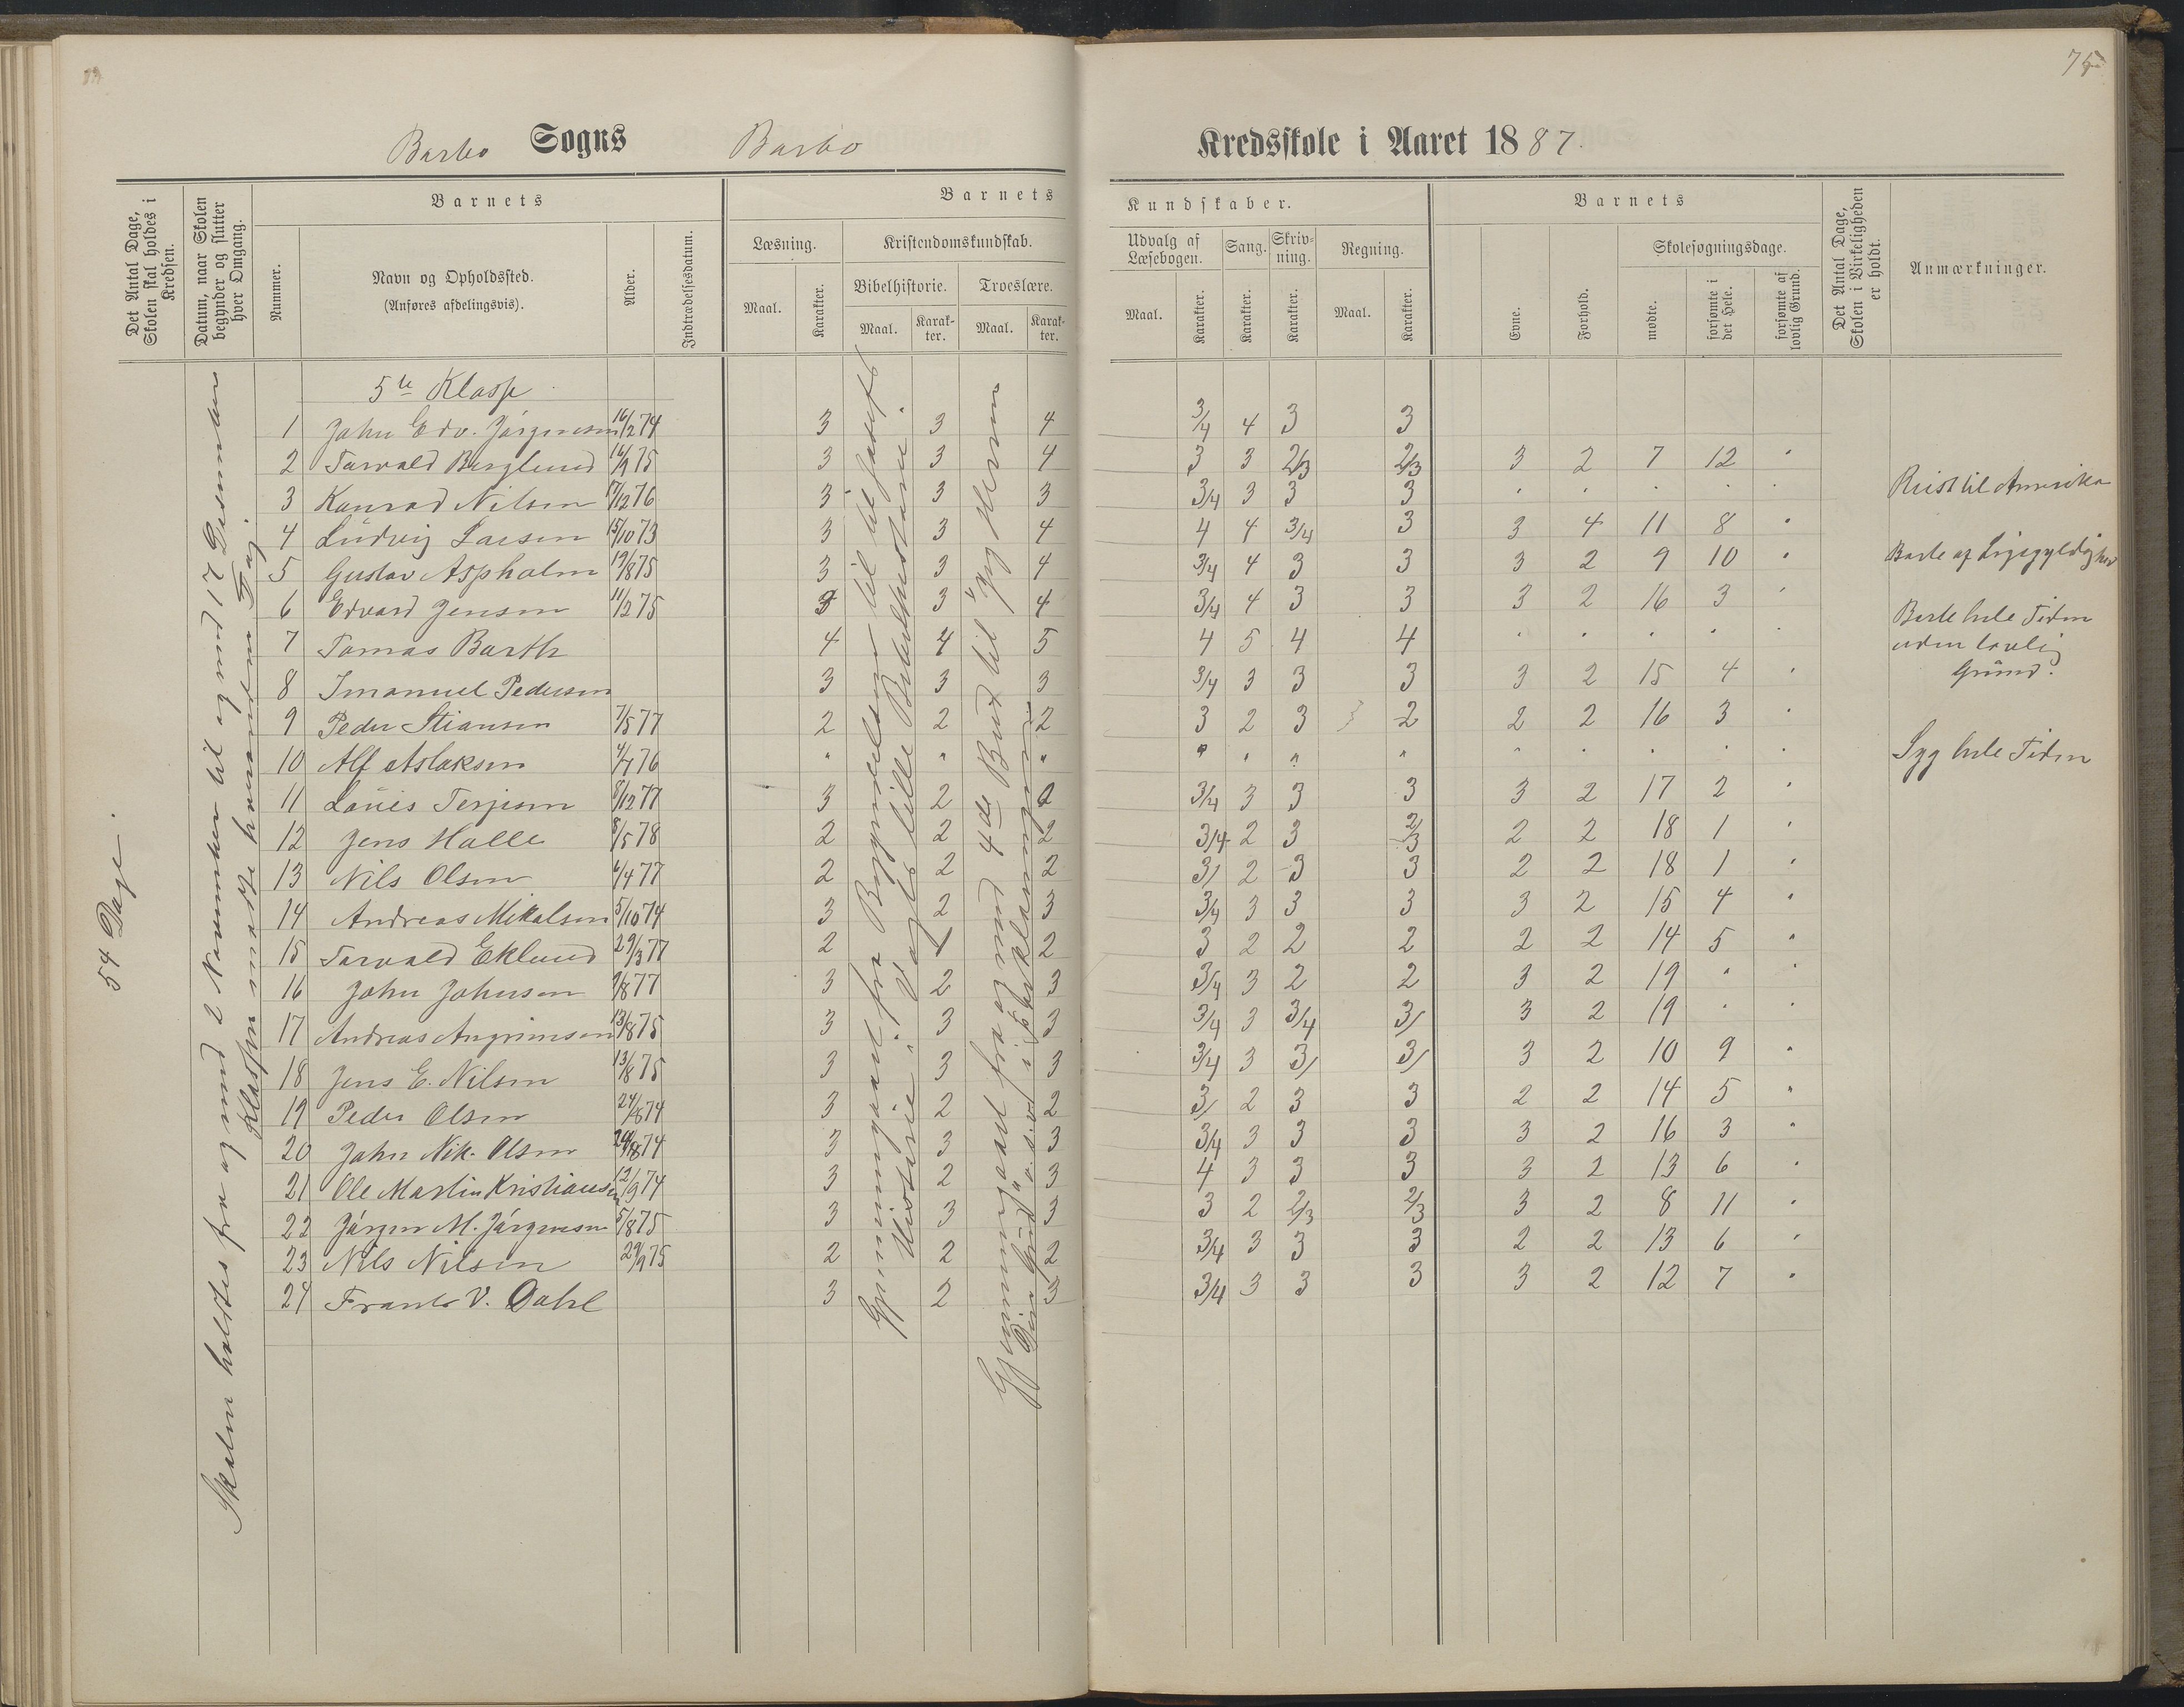 75
Barbo Sogns Barbo Kredsskole i Aaret 1887.
Det Antal Dage, Skolen skal holdes i Kredsen.
Datum, naar Skolen begynder og slutter hver Omgang.
Nummer.
Barnets
Navn og Opholdssted.
(Anføres afdelingsvis).
Alder.
Indtrædelsesdatum.
Barnets Kundskaber.
Læsning.
Maal.
Karakter.
Kristendomskundskab.
Bibelhistorie.
Maal.
Karakter.
Troeslære.
Maal.
Karakter.
Udvalg af Læsebogen.
Maal.
Karakter.
Sang.
Karakter.
Skrivning.
Karakter.
Regning.
Maal.
Karakter.
Barnets
Evne.
Forhold.
Skolesøgningsdage.
mødte.
forsømte i det Hele.
forsømte af lovlig Grund.
Det Antal Dage, Skolen i Virkeligheden er holdt.
Anmærkninger.
54 Dage.
Skolen holdtes fra og med 2 November til og med 17 Desember
Klassen mødte hverandem Dag
Gjennemgaaet fra Begyndelsen til til Josefs
Historie i Vogts lille Bibelhistorie.
Gjennemgaaet fra og med 4de Bud til
5te Klasse
1 John Edv. Jørgensen 16/2 74 3 3 4 3/4 4 3 3
2 Torvald Berglund 16/9 75 3 3 4 3 3 2/3 2/3 3 2 7 12 "
3 Konrad Nilsen 17/12 76 3 3 3 3/4 3 3 3 " " " " " Reist til Amerika
4 Ludvig Larsen 15/10 73 3 3 4 4 4 3/4 3 3 4 11 8 "
5 Gustav Aspholm 19/8 75 3 3 4 3/4 4 3 3 3 2 9 10 " Borte af Ligegyldighed
6 Edvard Jensen 11/2 75 3 3 4 3/4 4 3 3 3 2 16 3 "
7 Tomas Barth 4 4 5 4 5 4 4 " " " " " Borte hele Tiden uden lovlig Grund.
8 Imanuel Pedersen 3 3 3 3/4 3 3 3 3 2 15 4 "
9 Peder Stiansen 7/5 77 2 2 2 3 2 3 2 2 2 16 3 "
10 Alf Aslaksen 4/7 76 " " " " " " " " " " " " Syg hele Tiden
11 Louis Terjesen 8/12 77 3 2 2 3/4 3 3 3 3 2 17 2 "
12 Jens Halle 8/5 78 2 2 2 3/4 2 3 2/3 2 2 18 1 "
13 Nils Olsen 6/4 77 2 2 2 3/ 2 3 3 2 2 18 1 "
14 Andreas Mikalsen 5/10 74 3 2 3 3/4 3 3 3 3 2 15 4 "
15 Torvald Eklund 29/3 77 2 1 2 3 2 2 2 2 2 14 5 "
16 John Johnsen 9/8 77 3 2 3 3/4 3 2 2 3 2 19 " "
17 Andreas Angrimsen 13/8 75 3 3 3 3/4 3 3/4 3/ 3 2 19 " "
18 Jens E. Nilsen 13/8 75 3 3 3 3/4 3 3/ 3/ 3 2 10 9 "
19 Peder Olsen 24/8 74 3 2 2 3/ 2 3 3 2 2 14 5 "
20 John Nik. Olsen 24/8 74 3 3 3 3/4 3 3 3 3 2 16 3 "
21 Ole Martin Kristiansen 12/9 74 3 2 3 4 3 3 3 3 2 13 6 "
22 Jørgen M. Jørgensen 5/8 75 3 3 3 3 2 2/3 2/3 3 2 8 11 "
23 Nils Nilsen 29/9 75 2 2 2 3/4 3 3 3 2 2 13 6 "
24 Frants V. Dahl 3 2 3 3/4 3 3 3 3 2 12 7 "